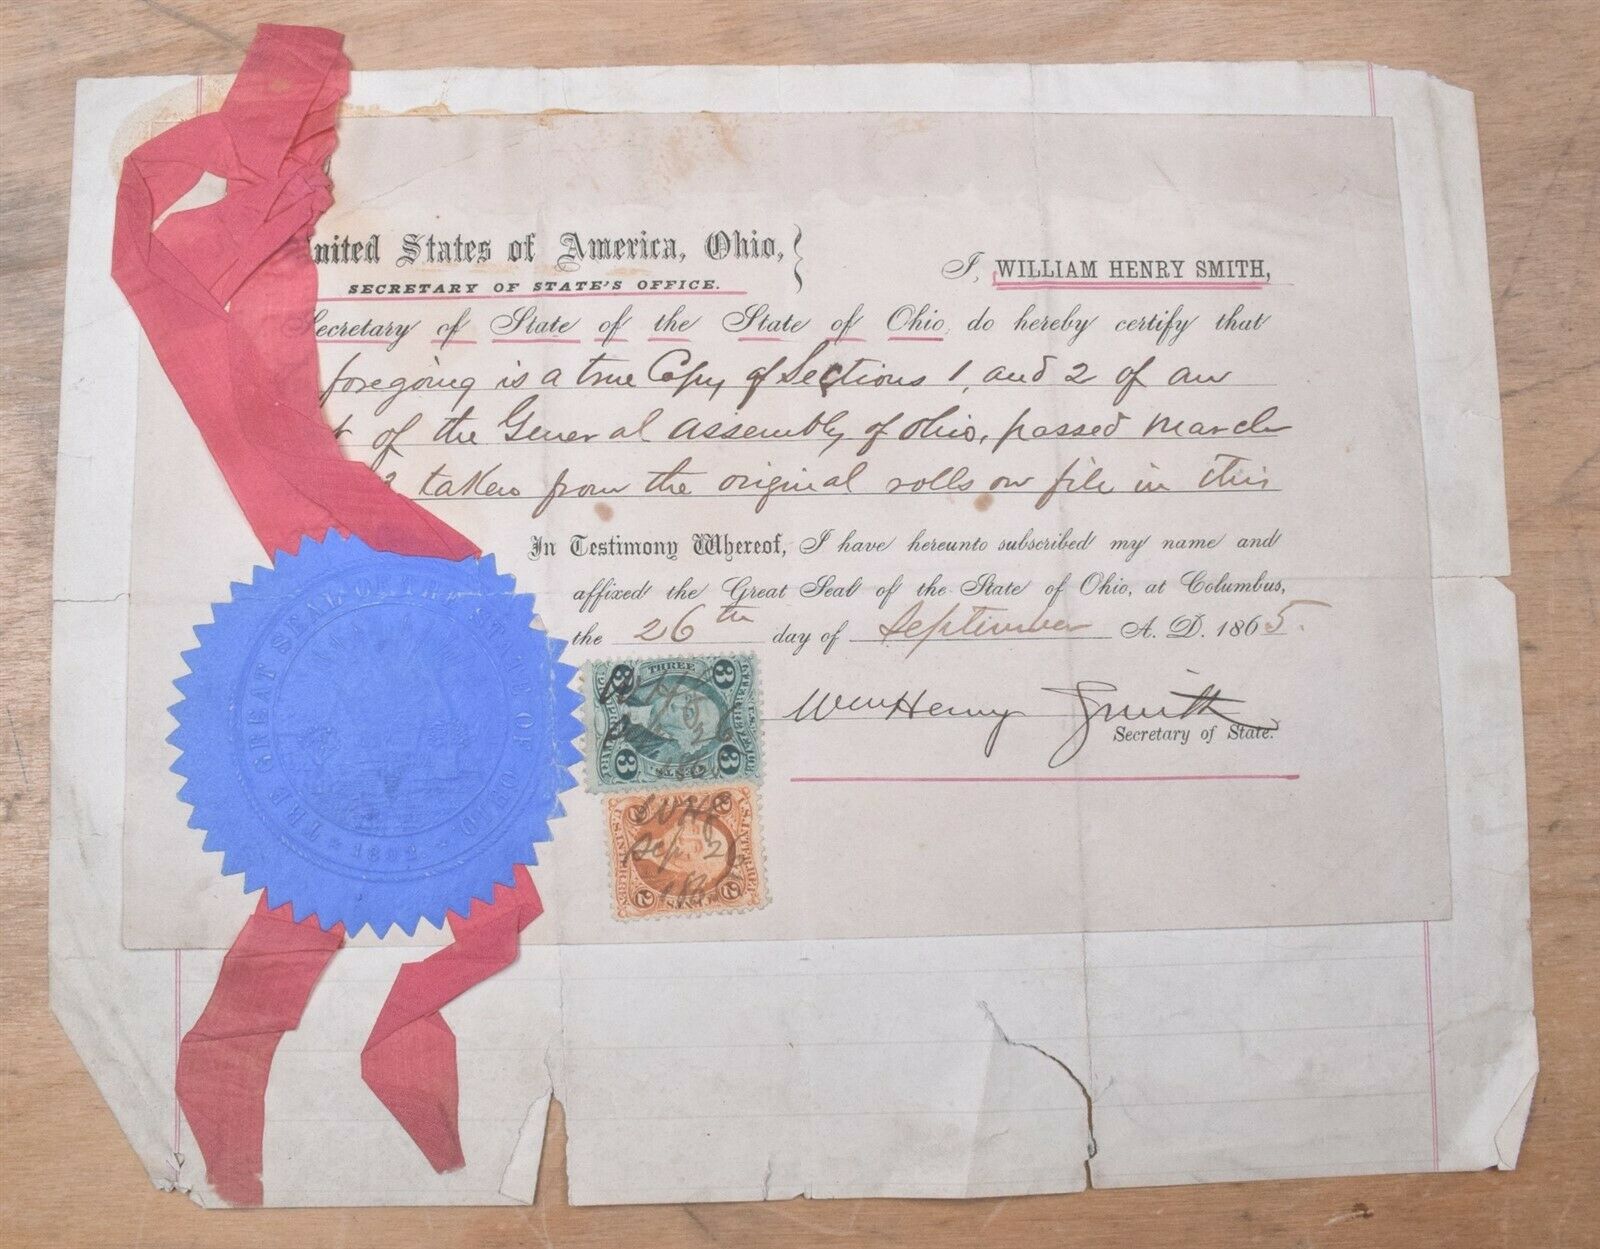 nited States of America, Ohio,
SECRETARY OF STATE'S OFFICE.
I, WILLIAM HENRY SMITH,
Secretary of State of the State of Ohio, do hereby certify that
foregoing is a true Copy of Sections 1, and 2 of an
of the General Assembly of Ohio, passed March
taken from the original rolls on file in this
In Testimony Whereof, I have hereunto subscribed my name and
affixed the Great Seal of the State of Ohio, at Columbus,
the 26th day of September A. D. 1865.
Wm Henry Smith
Secretary of State.
THE GREAT SEAL OF THE STATE OF OHIO.
1802.
3 THREE 3
3 CENTS 3
W H S
Sep. 26
2 2
2 2